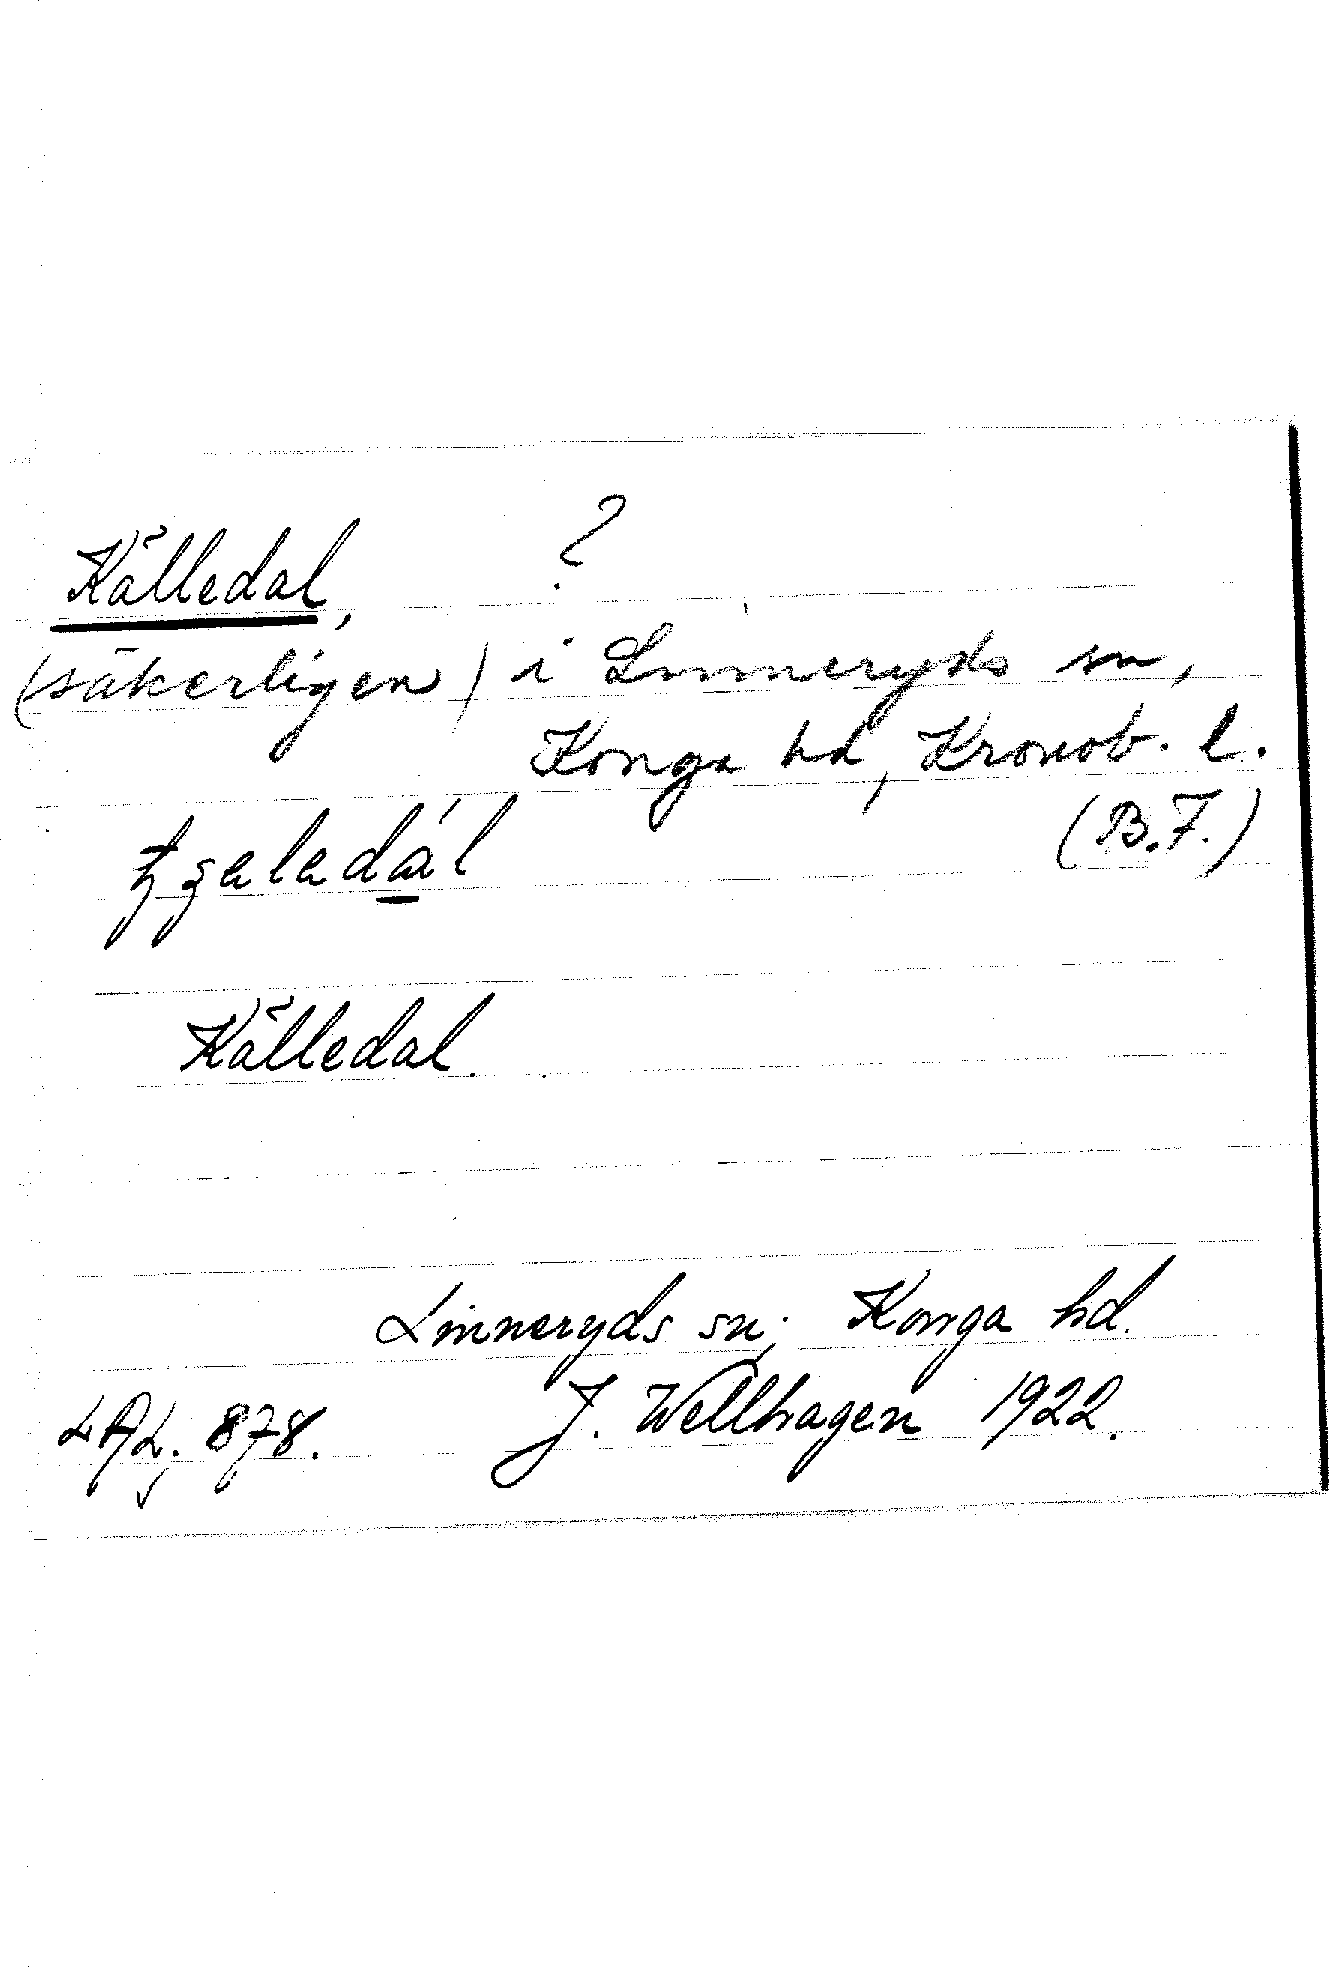 Källedal, ?
(säkerligen) i Linneryds sn,
Konga hd, Kronob. l.
(B.F.)
Källedal.
Linneryds sn; Konga hd.
J. Wellhagen 1922.
LAL. 878.